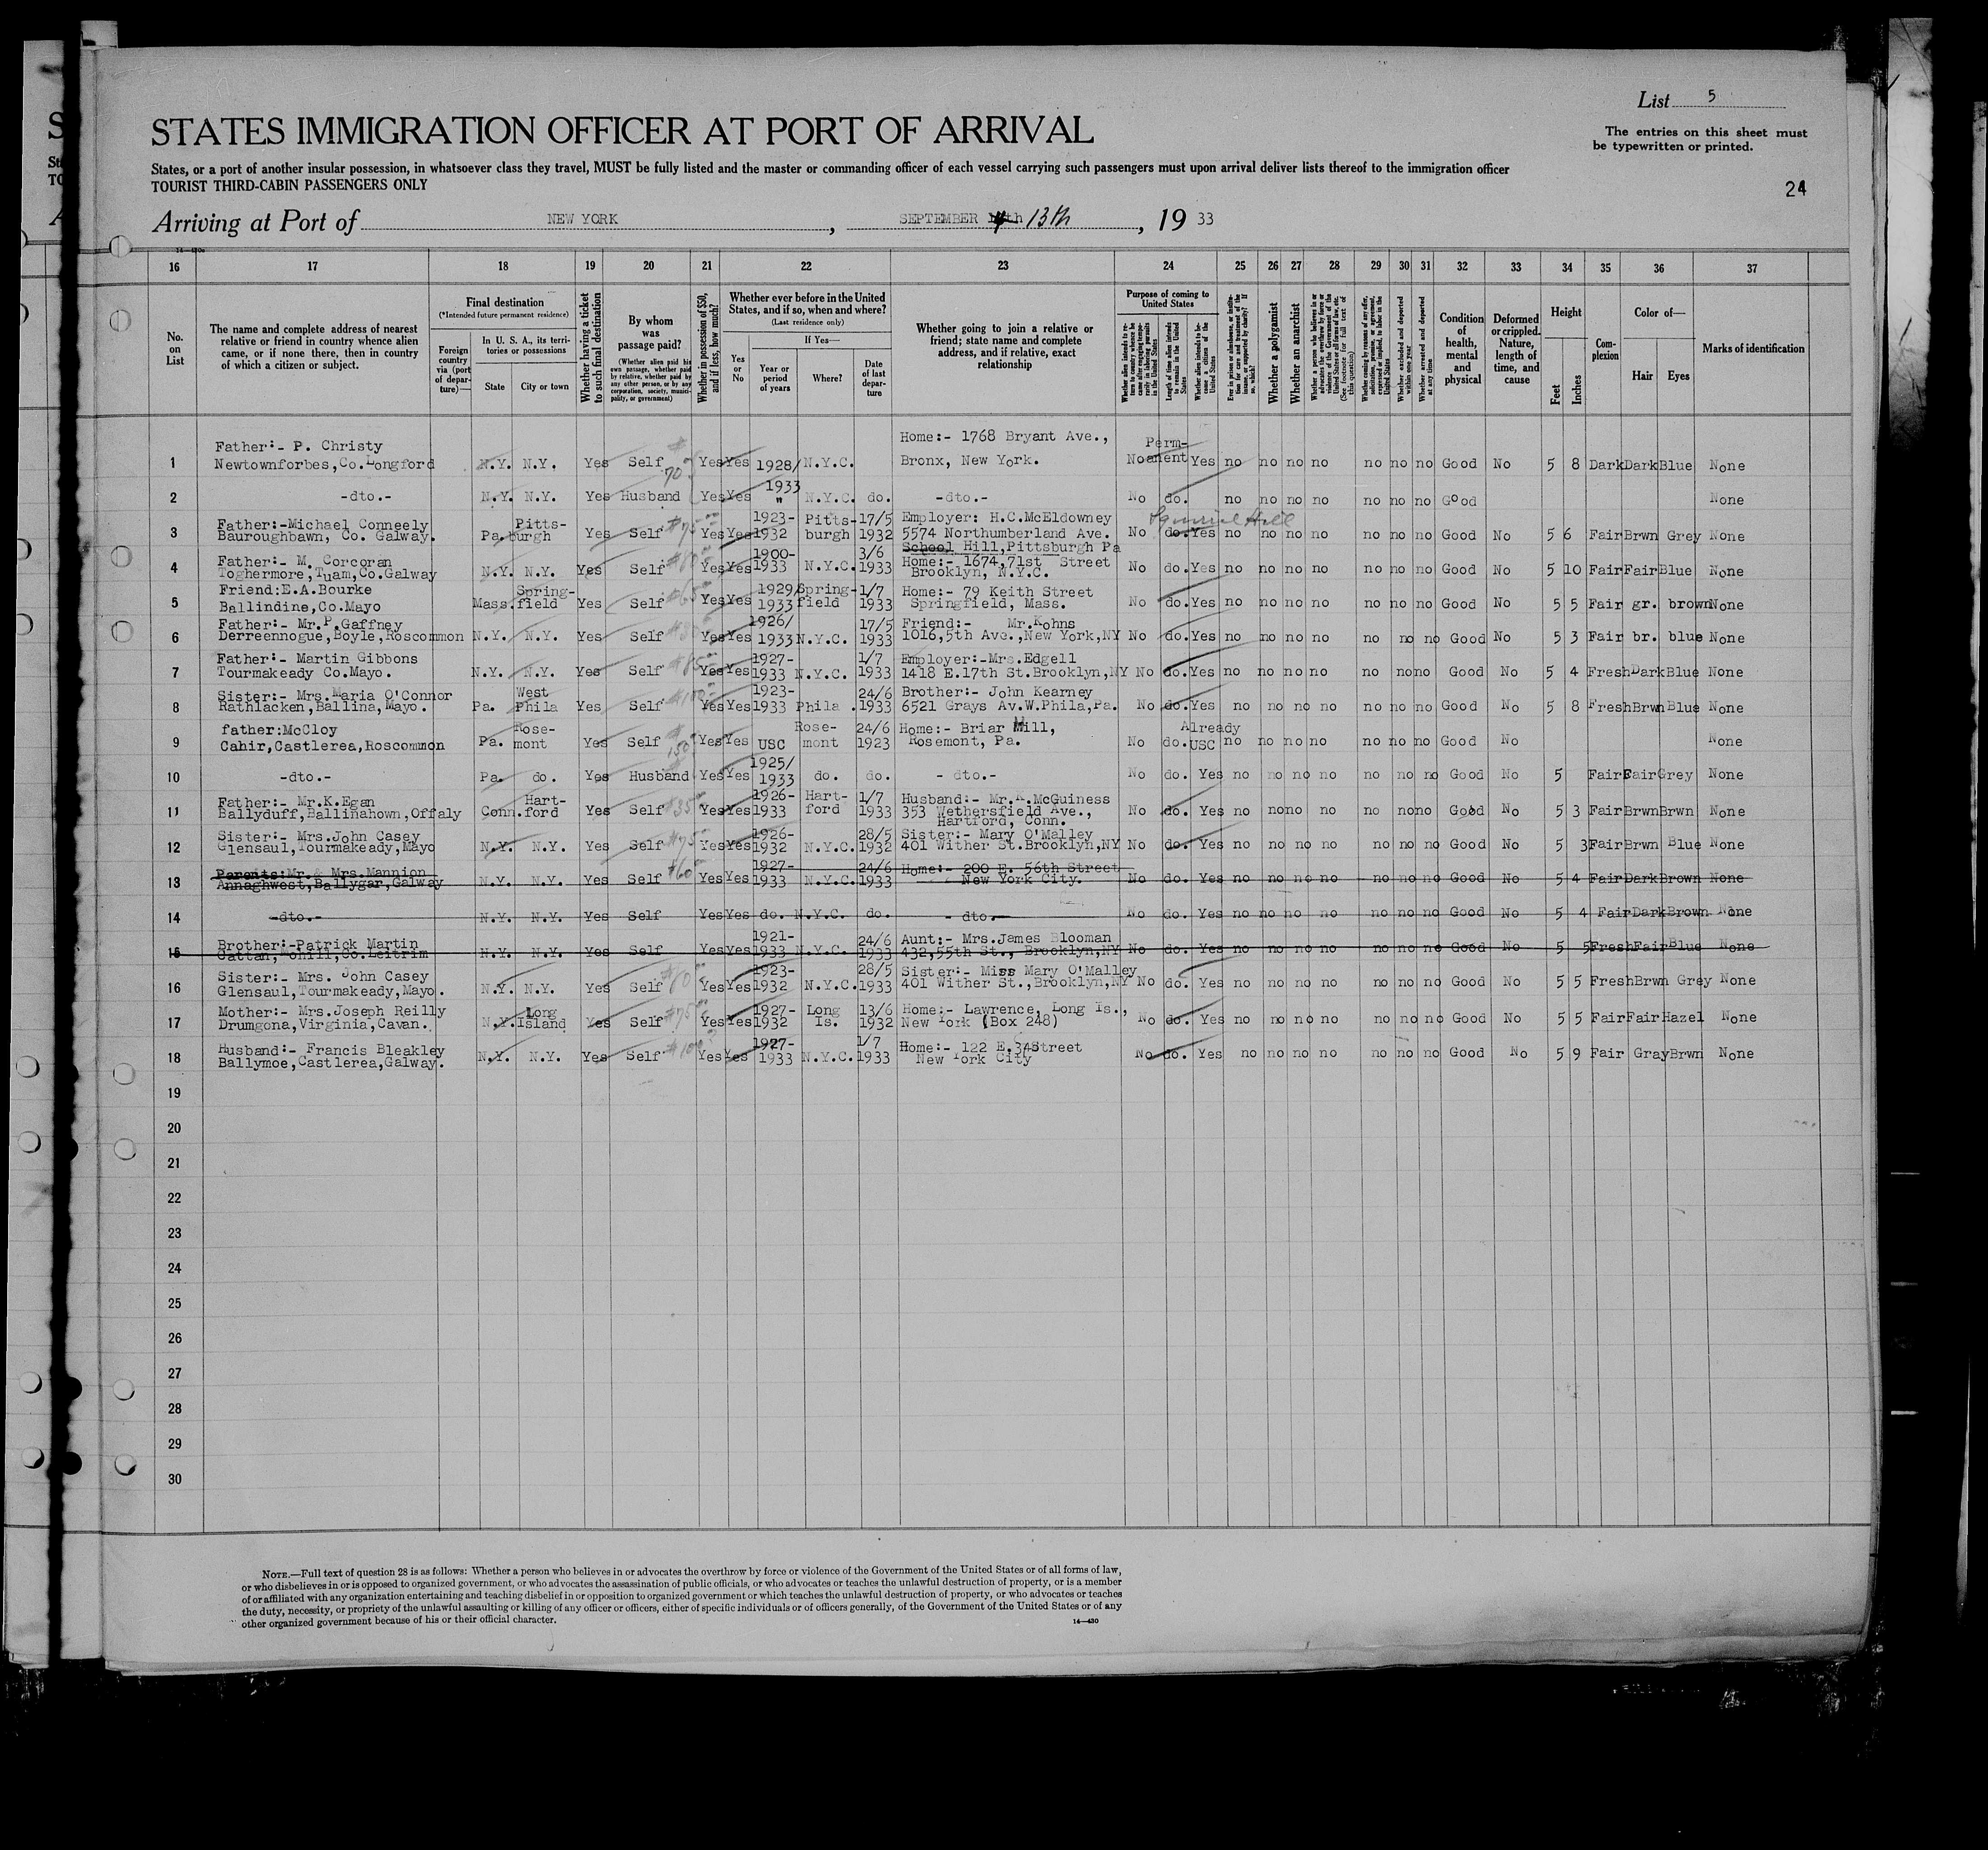 List 5
STATES IMMIGRATION OFFICER AT PORT OF ARRIVAL
The entries on this sheet must
be typewritten or printed.
States, or a port of another insular possession, in whatsoever class they travel, MUST be fully listed and the master or commanding officer of each vessel carrying such passengers must upon arrival deliver lists thereof to the immigration officer
TOURIST THIRD-CABIN PASSENGERS ONLY
24
Arriving at Port of NEW YORK, SEPTEMBER 13th, 19 33
16 17 18 19 20 21 22 23 24 25 26 27 28 29 30 31 32 33 34 35 36 37
No. on List
The name and complete address of nearest relative or friend in country whence alien came, or if none there, then in country of which a citizen or subject.
Final destination
(*Intended future permanent residence)
Foreign country via (port of departure)—
In U. S. A., its territories or possessions
State
City or town
Whether having a ticket to such final destination
By whom was passage paid?
(Whether alien paid his own passage, whether paid by relative, whether paid by any other person, or by any corporation, society, municipality, or government)
Whether in possession of $50, and if less, how much?
Whether ever before in the United States, and if so, when and where?
(Last residence only)
Yes or No
If Yes—
Year or period of years
Where?
Date of last departure
Whether going to join a relative or friend; state name and complete address, and if relative, exact relationship
Purpose of coming to United States
Length of time alien intends to remain in the United States
Whether alien intends to become a citizen of the United States
Whether a polygamist
Whether an anarchist
Whether excluded and deported within one year
Whether arrested and deported at any time
Condition of health, mental and physical
Deformed or crippled. Nature, length of time, and cause
Height
Feet
Inches
Complexion
Color of—
Hair
Eyes
Marks of identification
1 Father:- P. Christy Newtownforbes,Co.Longford N.Y. N.Y. Yes Self 70 Yes Yes 1928/1933 N.Y.C. Home:- 1768 Bryant Ave., Bronx, New York. No Permanent Yes no no no no no no no Good No 5 8 Dark Dark Blue None
2 -dto.- N.Y. N.Y. Yes Husband Yes Yes " N.Y.C. do. -dto.- No do. no no no no no no no Good None
3 Father:-Michael Conneely Bauroughbawn, Co. Galway. Pa. Pittsburgh Yes Self $75 Yes Yes 1923-1932 Pittsburgh 17/5 1932 Employer: H.C.McEldowney 5574 Northumberland Ave. School Hill,Pittsburgh Pa Squirrel Hill No do. Yes no no no no no no no Good No 5 6 Fair Brwn Grey None
4 Father:- M. Corcoran Toghermore,Tuam,Co.Galway N.Y. N.Y. Yes Self Yes Yes 1900-1933 N.Y.C. 3/6 1933 Home:- 1674,71st Street Brooklyn, N.Y.C. No do. Yes no no no no no no no Good No 5 10 Fair Fair Blue None
5 Friend:E.A.Bourke Ballindine,Co.Mayo Mass. Springfield Yes Self $65 Yes Yes 1929/1933 Springfield 1/7 1933 Home:- 79 Keith Street Springfield, Mass. No do. Yes no no no no no no no Good No 5 5 Fair gr. brown None
6 Father:- Mr.P.Gaffney Derreennogue,Boyle,Roscommon N.Y. N.Y. Yes Self Yes Yes 1926/1933 N.Y.C. 17/5 1933 Friend:- Mr.Kohns 1016,5th Ave.,New York,NY No do. Yes no no no no no no no Good No 5 3 Fair br. blue None
7 Father:- Martin Gibbons Tourmakeady Co.Mayo. N.Y. N.Y. Yes Self $85 Yes Yes 1927-1933 N.Y.C. 1/7 1933 Employer:-Mrs.Edgell 1418 E.17th St.Brooklyn,NY No do. Yes no no no no no no no Good No 5 4 Fresh Dark Blue None
8 Sister:- Mrs.Maria O'Connor Rathlacken,Ballina,Mayo. Pa. West Phila Yes Self $100 Yes Yes 1923-1933 Phila. 24/6 1933 Brother:- John Kearney 6521 Grays Av.W.Phila,Pa. No do. Yes no no no no no no no Good No 5 8 Fresh Brwn Blue None
9 father:McCloy Cahir,Castlerea,Roscommon Pa. Rosemont Yes Self $150 Yes Yes USC Rosemont 24/6 1923 Home:- Briar Mill, Rosemont, Pa. No do. Already USC no no no no no no no Good No None
10 -dto.- Pa. do. Yes Husband Yes Yes 1925/1933 do. do. - dto.- No do. Yes no no no no no no no Good No 5 Fair Fair Grey None
11 Father:- Mr.K.Egan Ballyduff,Ballinahown,Offaly Conn. Hartford Yes Self $35 Yes Yes 1926-1933 Hartford 1/7 1933 Husband:- Mr.K.McGuiness 353 Wethersfield Ave., Hartford, Conn. No do. Yes no no no no no no no Good No 5 3 Fair Brwn Brwn None
12 Sister:- Mrs.John Casey Glensaul,Tourmakeady,Mayo N.Y. N.Y. Yes Self $75 Yes Yes 1926-1932 N.Y.C. 28/5 1932 Sister:- Mary O'Malley 401 Wither St.Brooklyn,NY No do. Yes no no no no no no no Good No 5 3 Fair Brwn Blue None
13 Parents:Mr.& Mrs.Mannion Annaghwest,Ballygar,Galway N.Y. N.Y. Yes Self $60 Yes Yes 1927-1933 N.Y.C. 24/6 1933 Home:- 200 E. 56th Street New York City. No do. Yes no no no no no no no Good No 5 4 Fair Dark Brown None
14 -dto.- N.Y. N.Y. Yes Self Yes Yes do. N.Y.C. do. - dto.- No do. Yes no no no no no no no Good No 5 4 Fair Dark Brown None
15 Brother:-Patrick Martin Cattan,Mohill,Co.Leitrim N.Y. N.Y. Yes Self Yes Yes 1921-1933 N.Y.C. 24/6 1933 Aunt:- Mrs.James Blooman 432,55th St., Brooklyn,NY No do. Yes no no no no no no no Good No 5 5 Fresh Fair Blue None
16 Sister:- Mrs. John Casey Glensaul,Tourmakeady,Mayo. N.Y. N.Y. Yes Self Yes Yes 1923-1932 N.Y.C. 28/5 1933 Sister:- Miss Mary O'Malley 401 Wither St.,Brooklyn,NY No do. Yes no no no no no no no Good No 5 5 Fresh Brwn Grey None
17 Mother:- Mrs.Joseph Reilly Drumgona,Virginia,Cavan. N.Y. Long Island Yes Self $75 Yes Yes 1927-1932 Long Is. 13/6 1932 Home:- Lawrence, Long Is., New York (Box 248) No do. Yes no no no no no no no Good No 5 5 Fair Fair Hazel None
18 Husband:- Francis Bleakley Ballymoe,Castlerea,Galway. N.Y. N.Y. Yes Self $100 Yes Yes 1927-1933 N.Y.C. 1/7 1933 Home:- 122 E.34Street New York City No do. Yes no no no no no no no Good No 5 9 Fair Gray Brwn None
19
20
21
22
23
24
25
26
27
28
29
30
NOTE.—Full text of question 28 is as follows: Whether a person who believes in or advocates the overthrow by force or violence of the Government of the United States or of all forms of law,
or who disbelieves in or is opposed to organized government, or who advocates the assassination of public officials, or who advocates or teaches the unlawful destruction of property, or is a member
of or affiliated with any organization entertaining and teaching disbelief in or opposition to organized government or which teaches the unlawful destruction of property, or who advocates or teaches
the duty, necessity, or propriety of the unlawful assaulting or killing of any officer or officers, either of specific individuals or of officers generally, of the Government of the United States or of any
other organized government because of his or their official character.
14—430